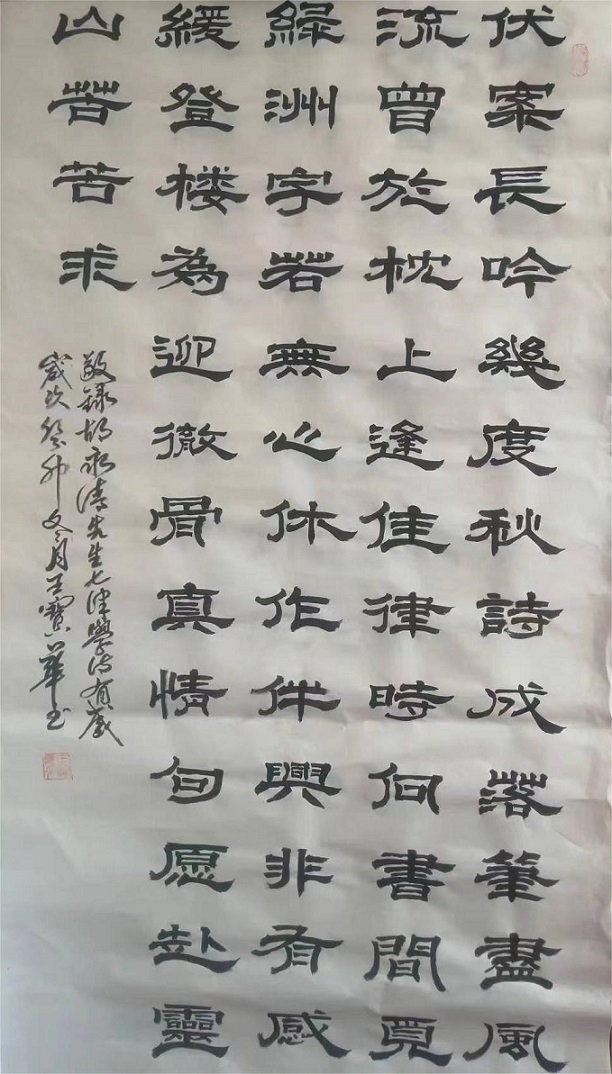 伏案長吟幾度秋詩成落筆盡風
流曾於枕上逢佳律時向書間覓
綠洲字若無心休作伴興非有感
緩登楼為迎徹骨真情句愿赴靈
山苦苦求
敬録胡永涛先生七律學詩有感
歲次癸卯冬月王寶華书